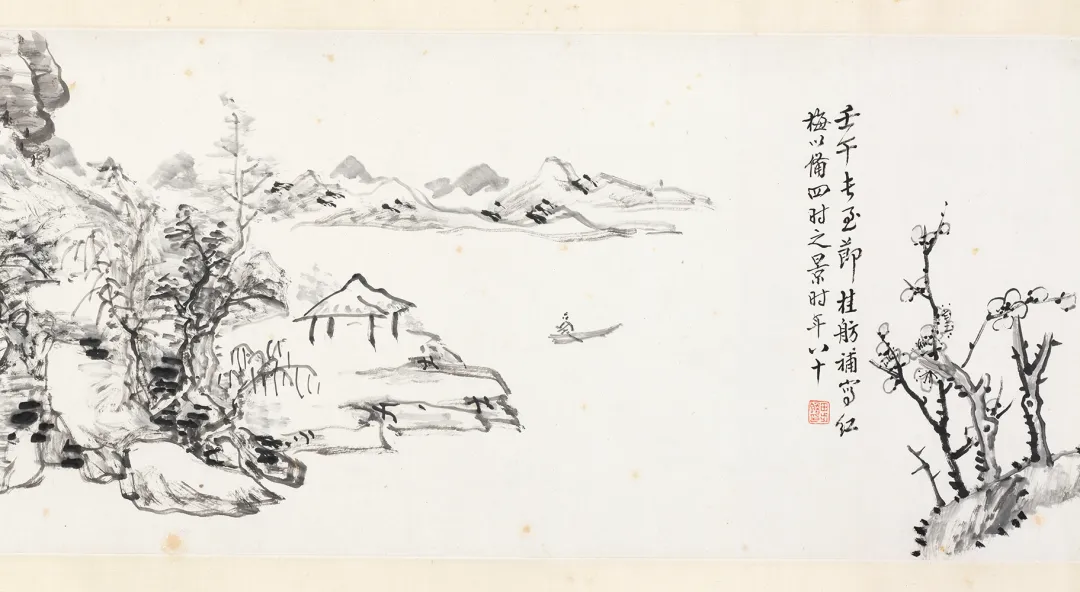 壬午长至節桂舫補寫红
梅以備四时之景时年八十